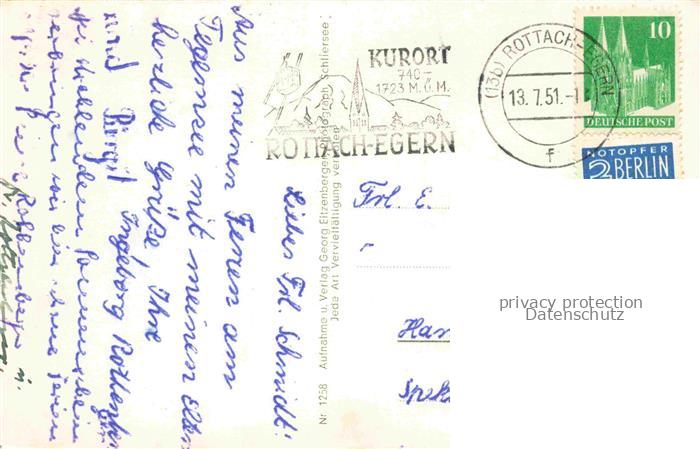 Liebes Frl. Schmidt!
Aus meinen Ferien am
Tegernsee mit meinen Eltern
herzliche Grüße, Ihre
Ingeborg Rottenber
und Birgit
bei strahlendem Sonnenschein
verbringen wir hier schöne Ferien
Nr 1258 Aufnahme u. Verlag Georg Eitzenberger, Photograph, Schliersee
Jede Art Vervielfältigung verboten
KURORT
740-
1723 M.Ü.M.
ROTTACH-EGERN
(13b) ROTTACH-EGERN
13.7.51.-1
f
10
DEUTSCHE POST
NOTOPFER
2 BERLIN
Frl. E.
Han
Spek
privacy protection
Datenschutz